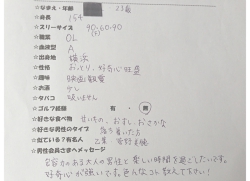 ☆なまえ・年齢 23歳
☆身長 154
☆スリーサイズ 90.60.90
☆職業 OL
☆血液型 A
☆出身地 横浜
☆性格 おっとり、好奇心旺盛
☆趣味 映画鑑賞
☆お酒 少し
☆タバコ 吸いません
☆ゴルフ経験 有・無
☆好きな食べ物 甘いもの、おすし、おさかな
☆好きな男性のタイプ 落ち着いた方
☆似ている?有名人
☆男性会員さまへメッセージ
包容力のある大人の男性と楽しい時間を過ごしたいです。
好奇心が強いです。色んなコト教えて下さい!